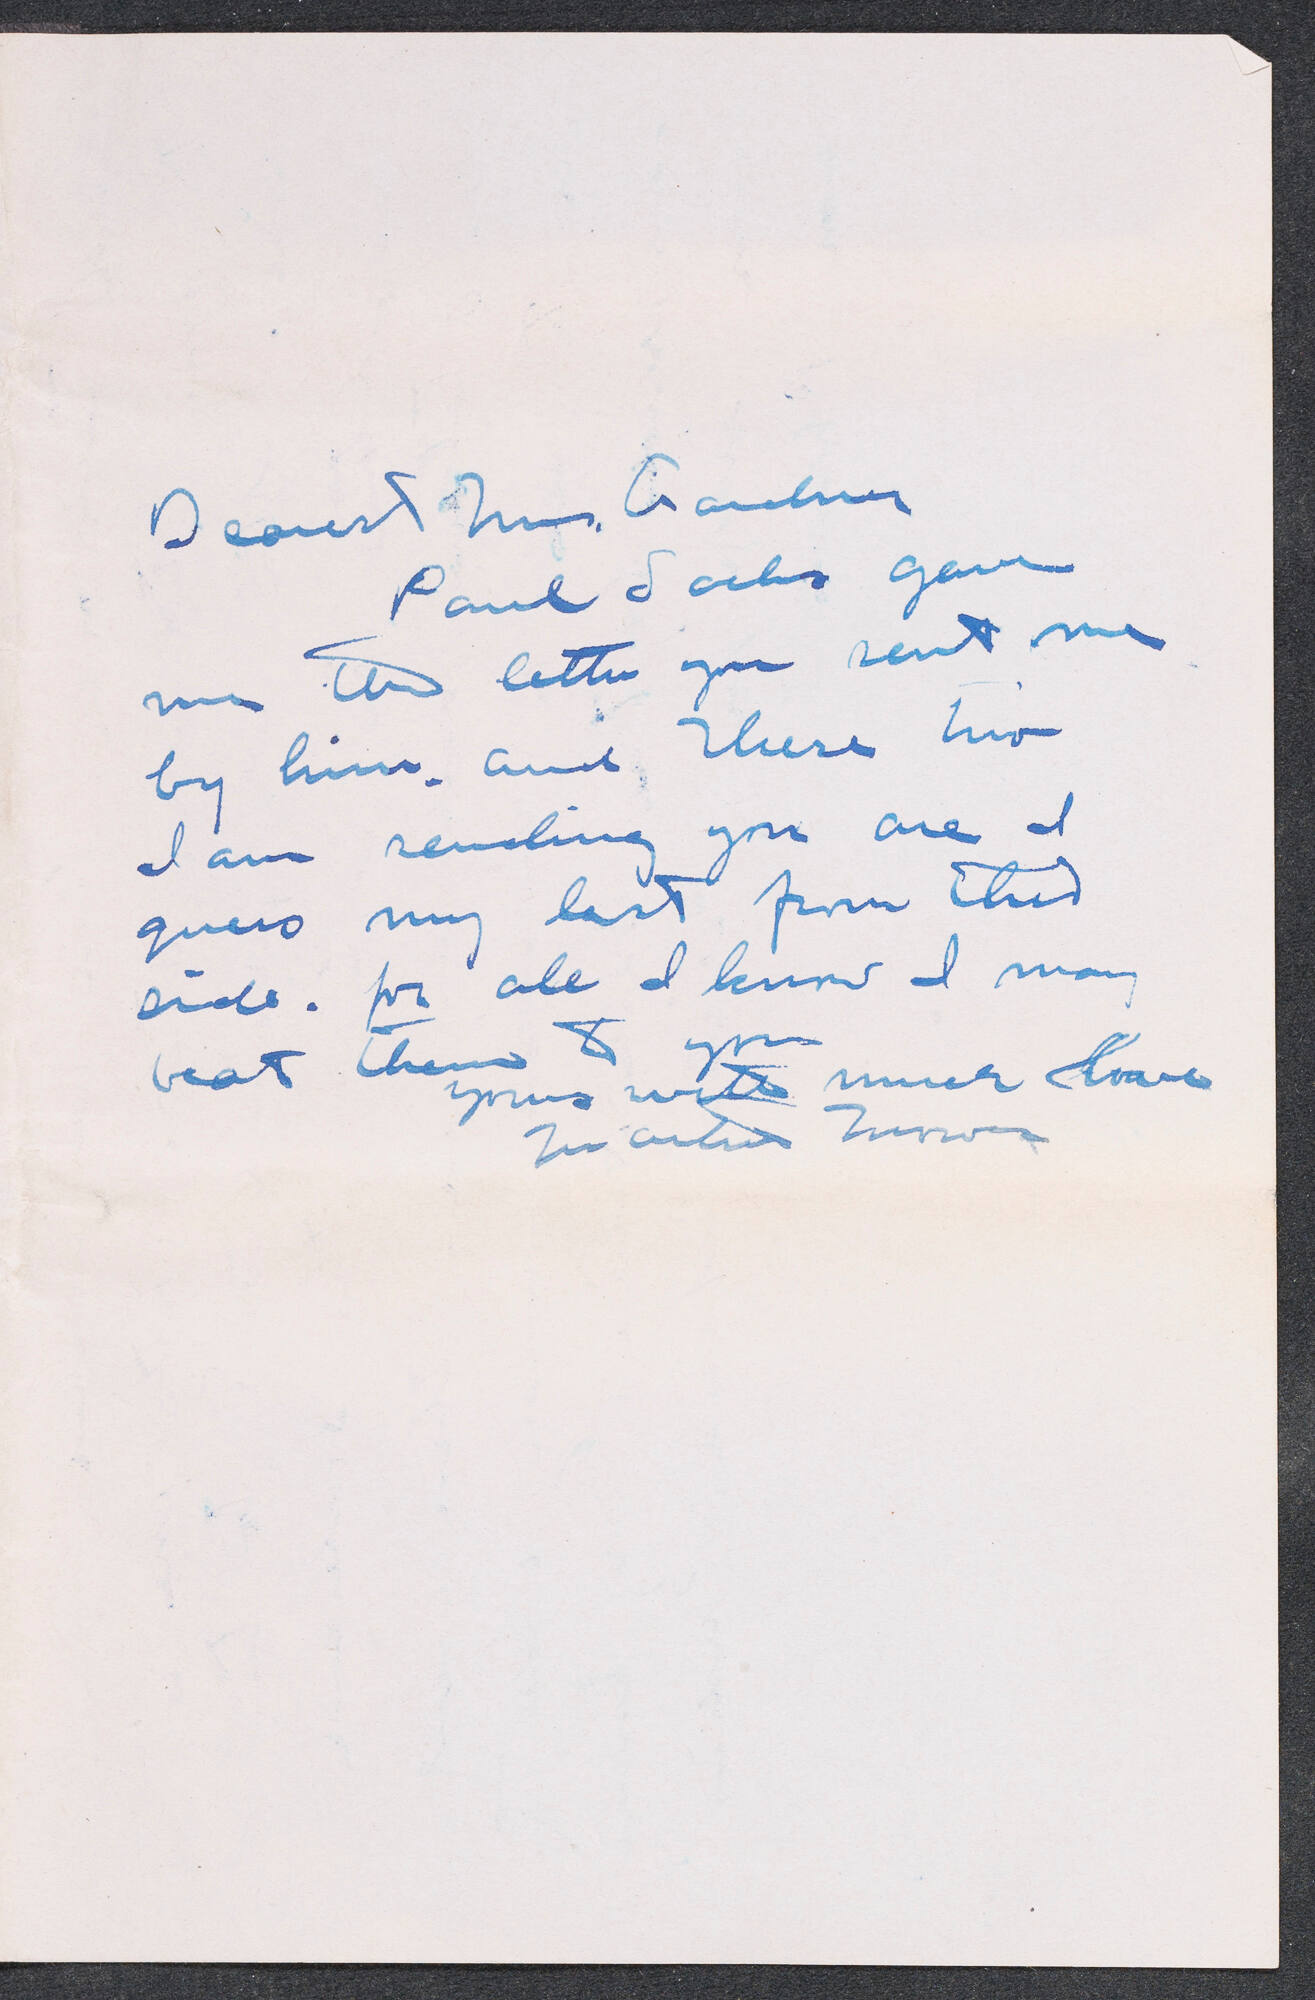 Dearest Mrs. Gardner
Paul Sachs gave
me the letter you sent me
by him. and these two
I am sending you are I
guess my last from this
side. for all I know I may
beat them to you
yours with much love
Mower